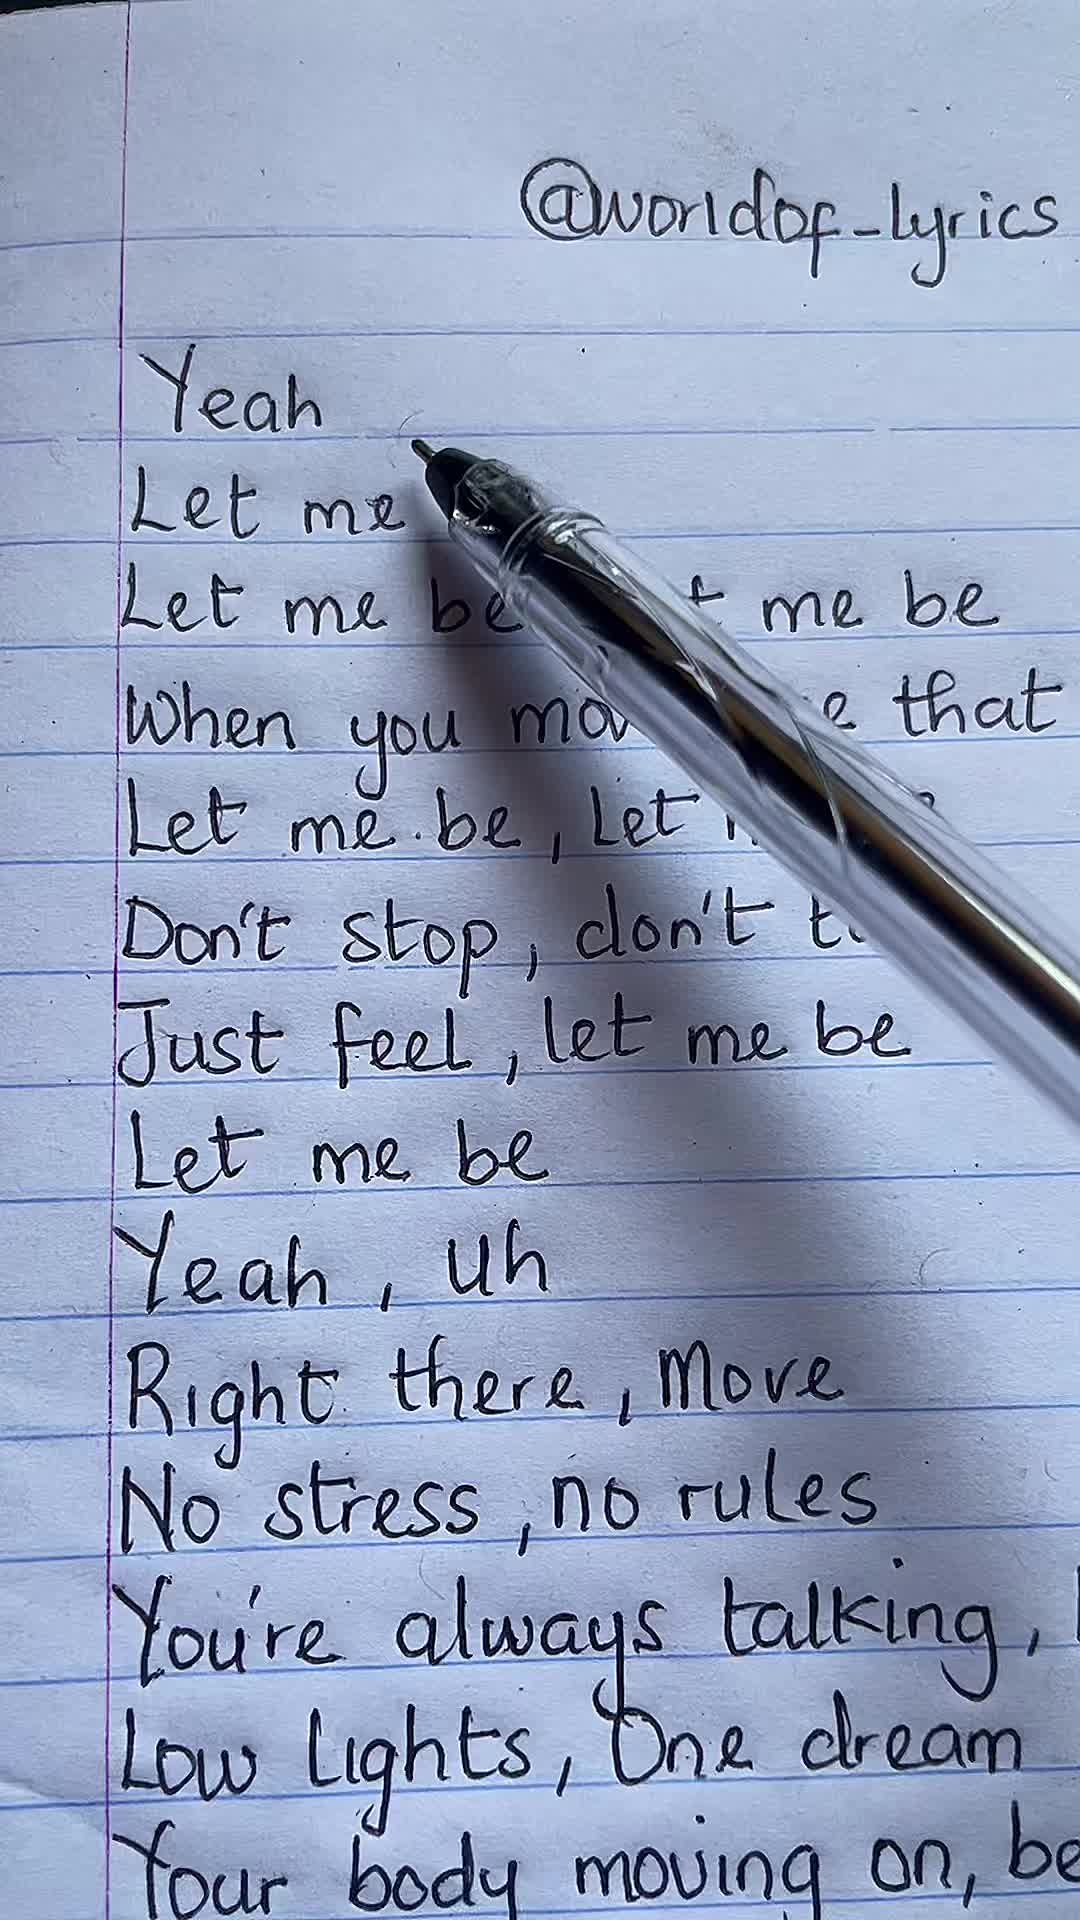 @worldof_lyrics
Yeah
Let me
Let me be me be
When you that
Let me be, Let
Don't stop, don't
Just feel, let me be
Let me be
Yeah, uh
Right there, Move
No stress, no rules
You're always talking,
Low Lights, One dream
Your body moving on,